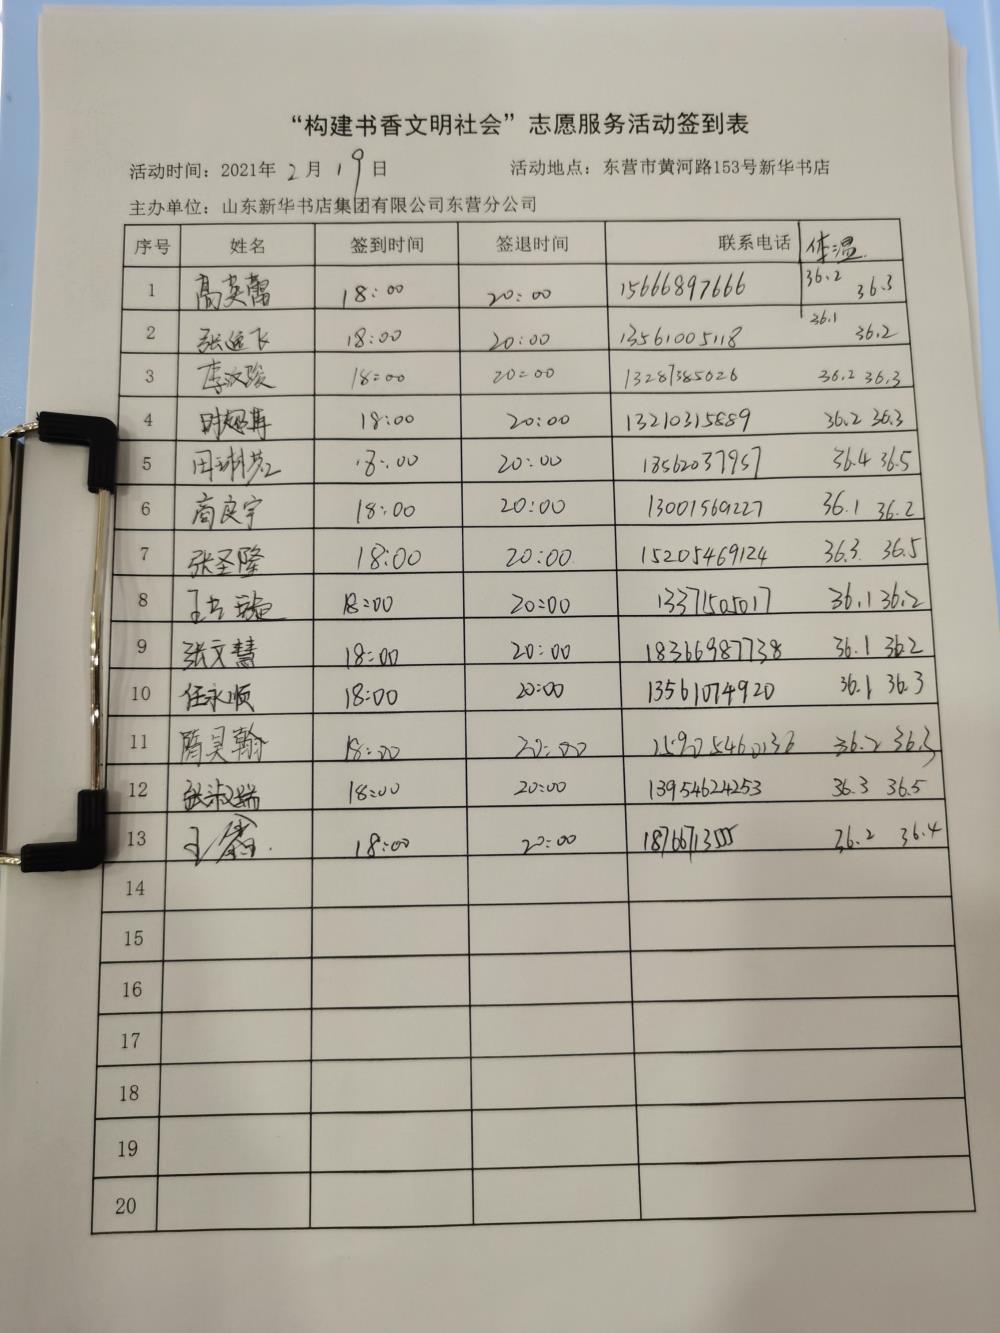 “构建书香文明社会”志愿服务活动签到表
活动时间：2021年 2月 19日 活动地点：东营市黄河路153号新华书店
主办单位：山东新华书店集团有限公司东营分公司
序号 姓名 签到时间 签退时间 联系电话 体温
1 高英蕾 18:00 20:00 15666897666 36.2 36.3
2 张逸飞 18:00 20:00 13561005118 36.1 36.2
3 李汶骏 18:00 20:00 13287385026 36.2 36.3
4 18:00 20:00 13210315889 36.2 36.3
5 18:00 20:00 18562037957 36.4 36.5
6 商良宇 18:00 20:00 13001569227 36.1 36.2
7 张圣隆 18:00 20:00 15205469124 36.3 36.5
8 18:00 20:00 13371505017 36.1 36.2
9 张文慧 18:00 20:00 18366987738 36.1 36.2
10 任永顺 18:00 20:00 13561074920 36.1 36.3
11 隋昊翰 18:00 20:00 15905460136 36.2 36.3
12 张淑瑞 18:00 20:00 13954624253 36.3 36.5
13 王鑫 18:00 20:00 18766713555 36.2 36.4
14
15
16
17
18
19
20